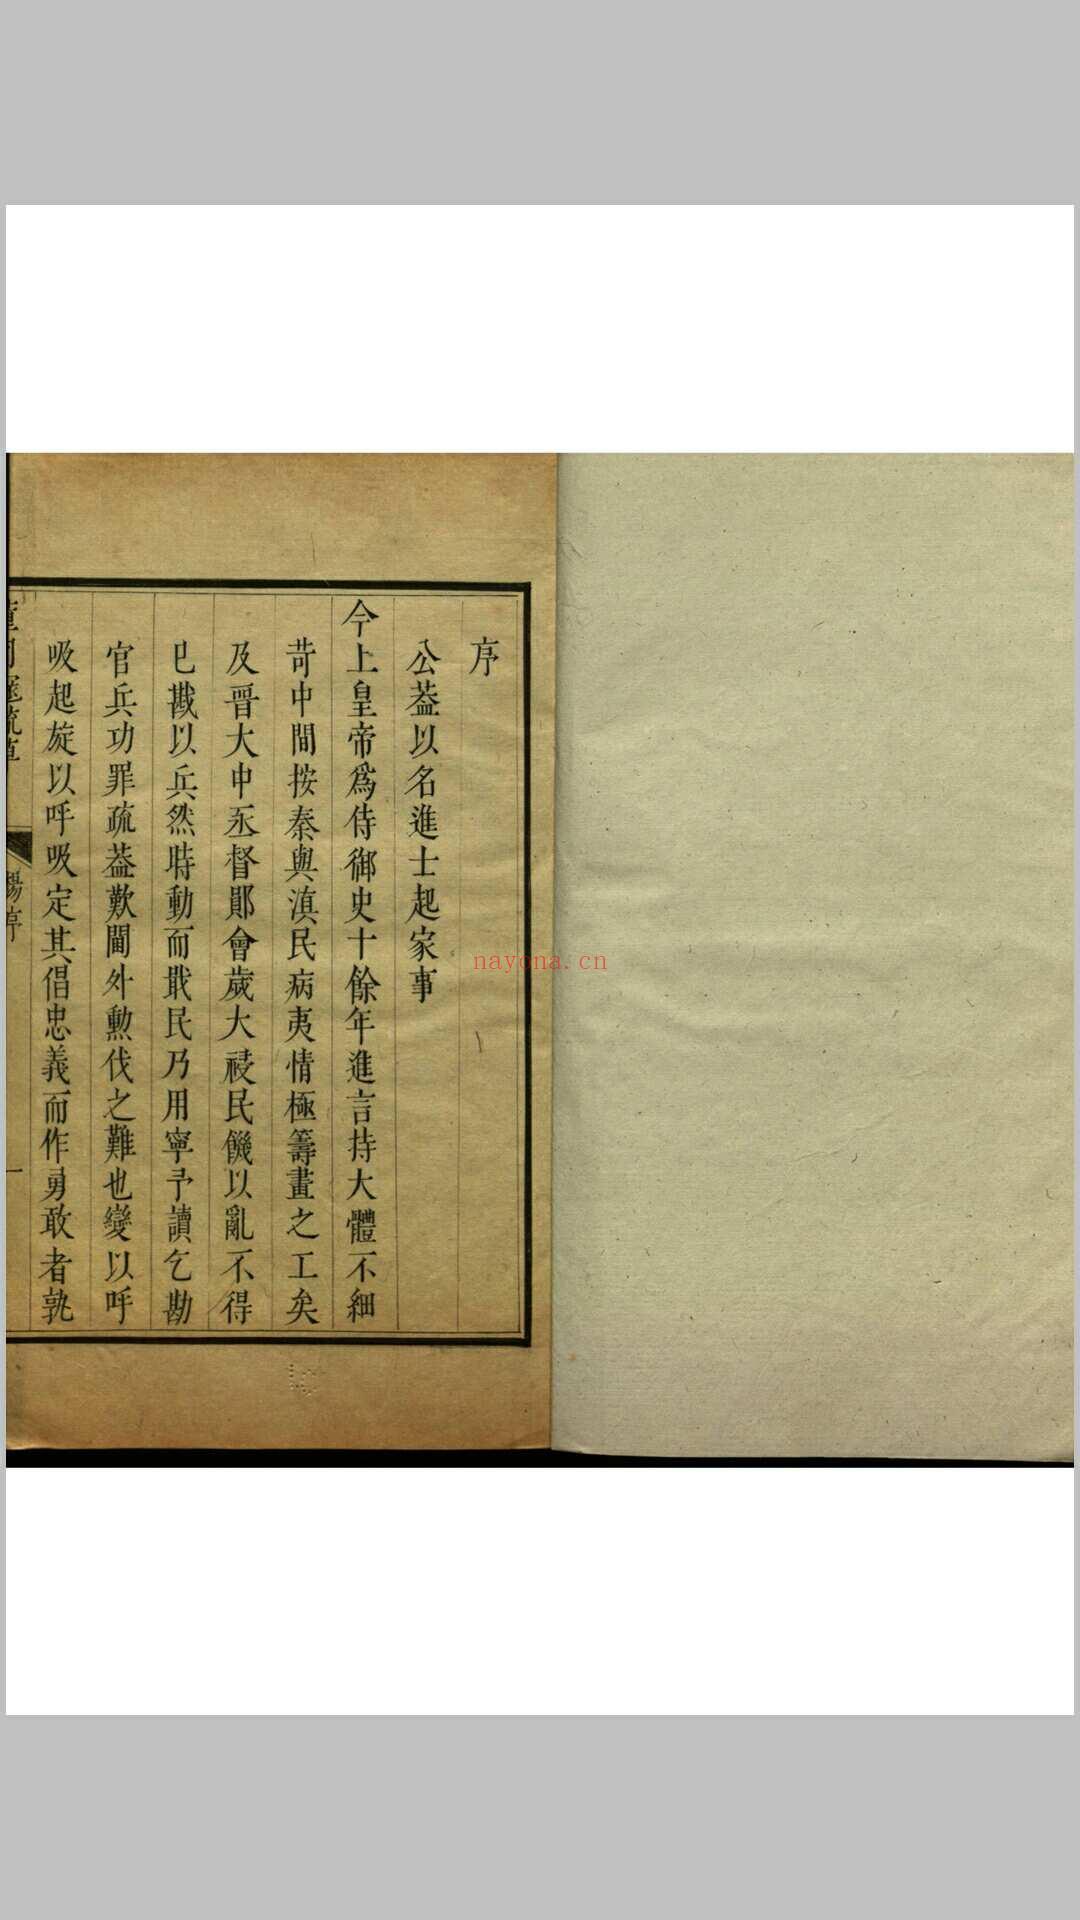 序
公葢以名進士起家事
今上皇帝爲侍御史十餘年進言持大體不細
苛中間按秦與滇民病夷情極籌畫之工矣
及晉大中丞督鄖會歲大祲民饑以亂不得
已戡以兵然時動而戢民乃用寧予讀乞勘
官兵功罪疏葢歎閫外勲伐之難也變以呼
吸起旋以呼吸定其倡忠義而作勇敢者孰
疏草
序
一
nayona.cn